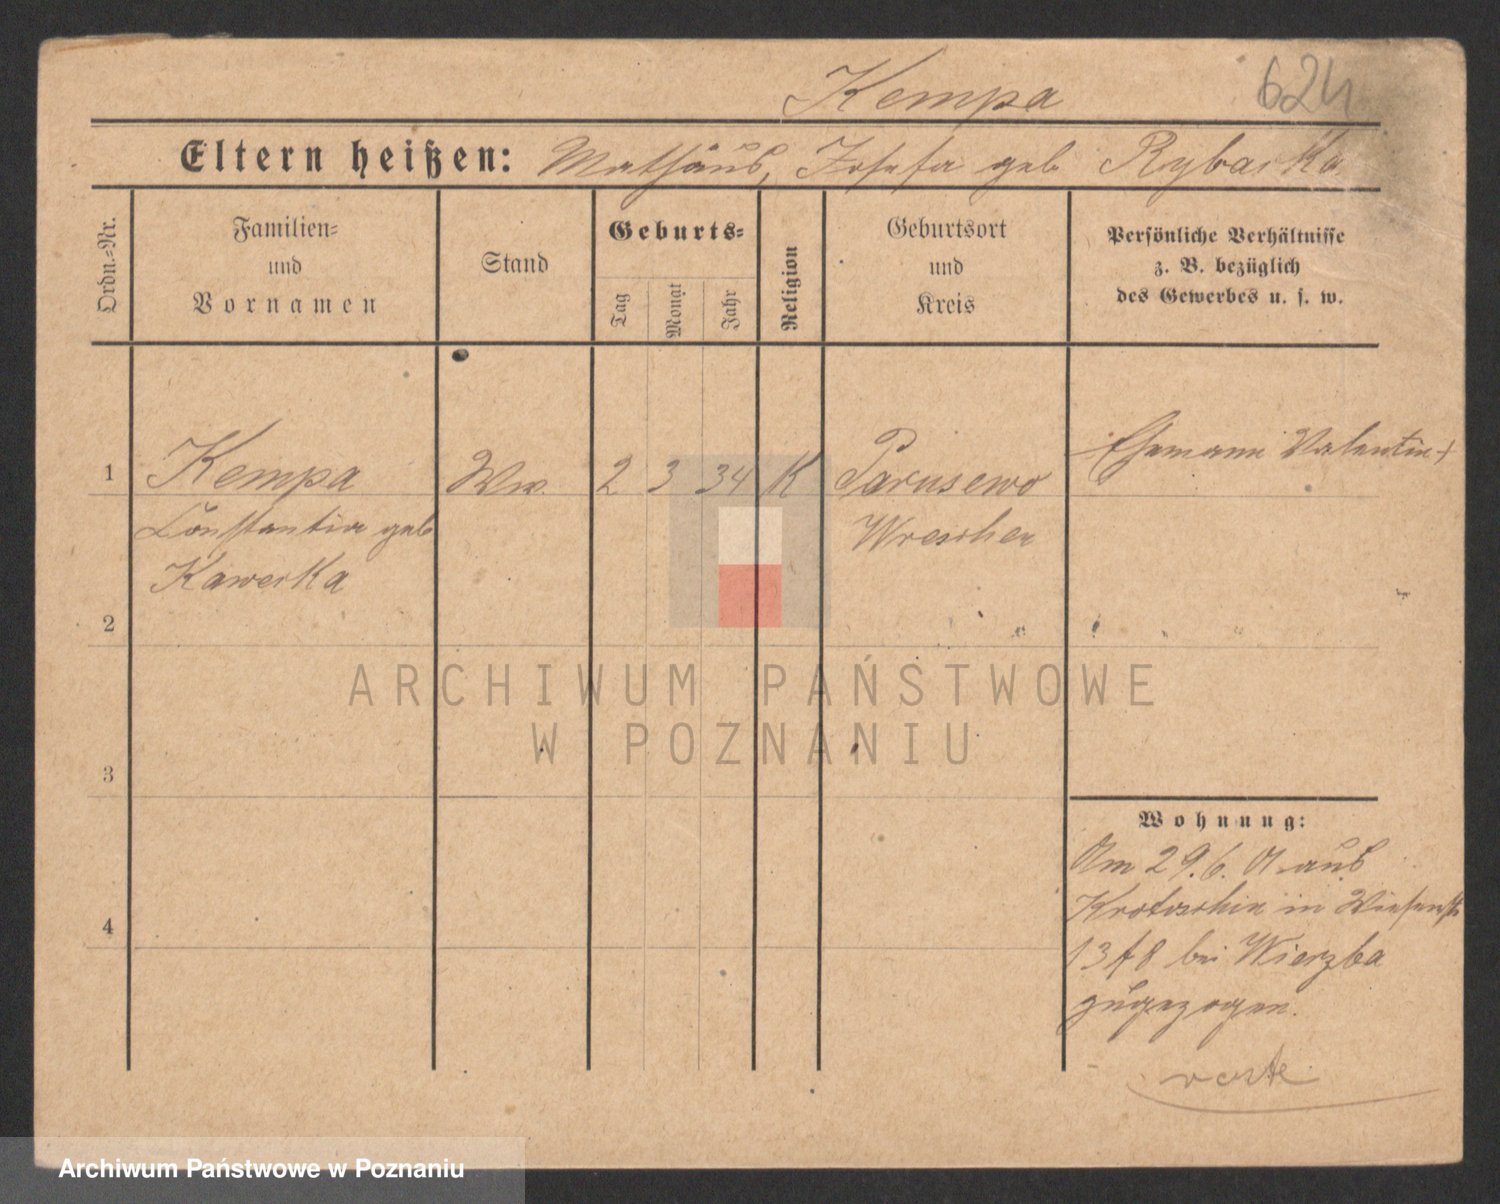 Kempa 624
Eltern heißen: Mathäus, Josefa geb Rybarka
Ordn.-Nr.
Familien-
und
Vornamen
Stand
Geburts-
Tag
Monat
Jahr
Religion
Geburtsort
und
Kreis
Persönliche Verhältnisse
z. B. bezüglich
des Gewerbes u. s. w.
1 Kempa Ww. 2 3 34 K Parusewo Ehemann Valentin +
Constantia geb Wreschen
Kawerka
2
3
4
Wohnung:
Am 29.6. 01 aus
Krotoschin in Wiesenstr
13 bei Wierzba
zugezogen.
verte
ARCHIWUM PAŃSTWOWE
W POZNANIU
Archiwum Państwowe w Poznaniu